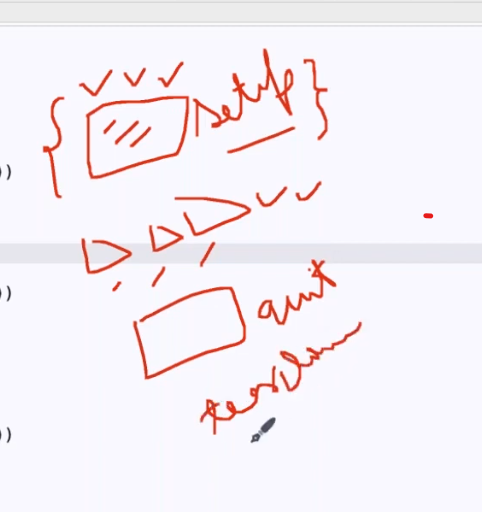 { setup }
))
))
quit
teardown
))